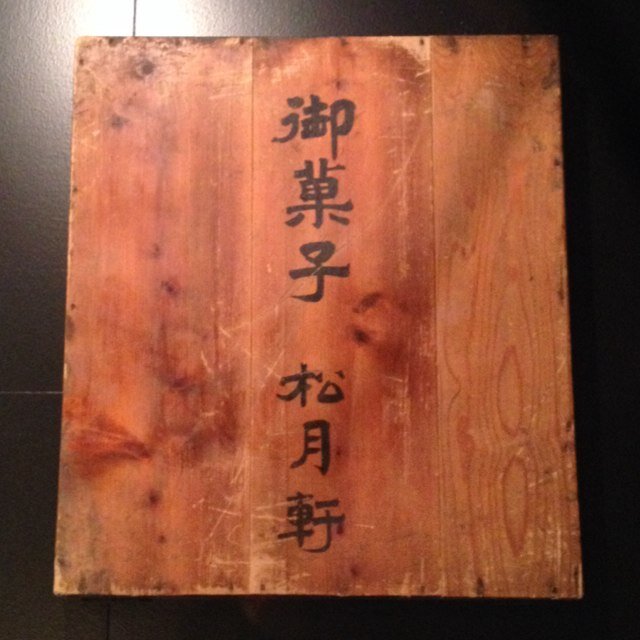 御菓子 松月軒